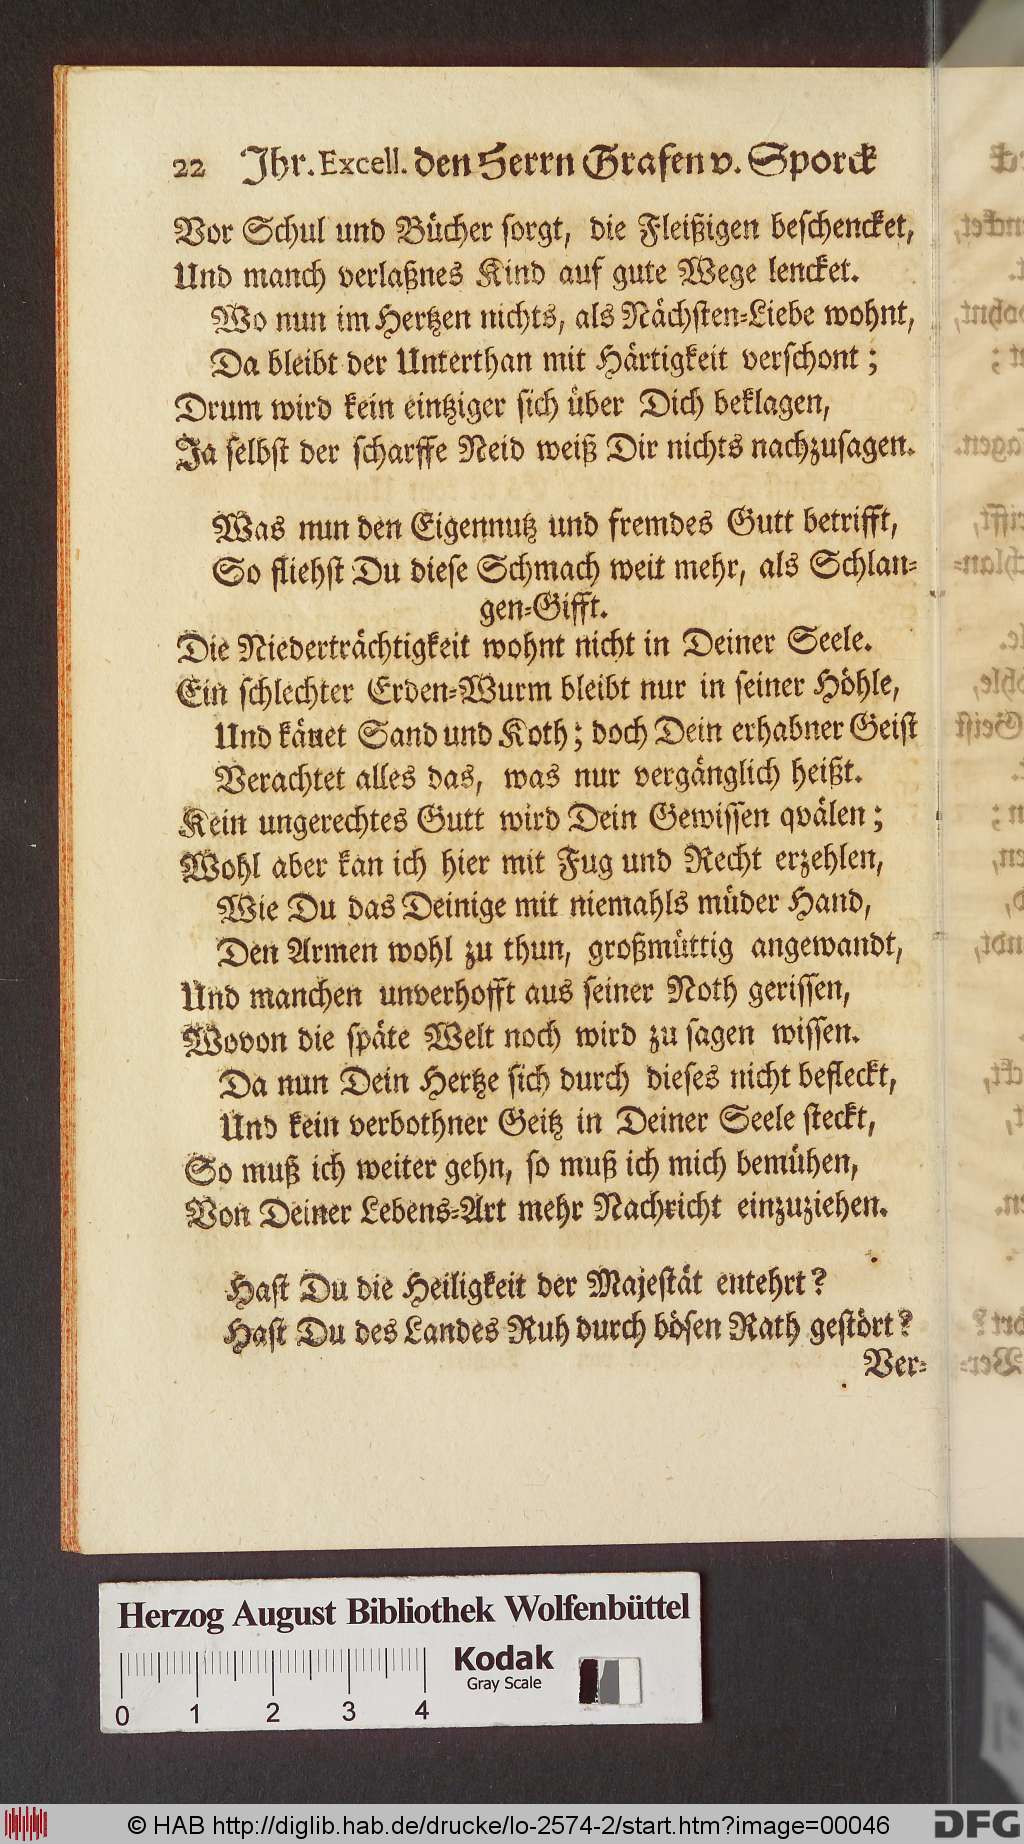 22 Jhr. Excell. den Herrn Grafen v. Sporck
Vor Schul und Bücher sorgt, die Fleißigen beschencket,
Und manch verlaßnes Kind auf gute Wege lencket.
Wo nun im Hertzen nichts, als Nächsten-Liebe wohnt,
Da bleibt der Unterthan mit Härtigkeit verschont;
Drum wird kein eintziger sich über Dich beklagen,
Ja selbst der scharffe Neid weiß Dir nichts nachzusagen.
Was nun den Eigennutz und fremdes Gutt betrifft,
So fliehst Du diese Schmach weit mehr, als Schlan-
gen-Gifft.
Die Niederträchtigkeit wohnt nicht in Deiner Seele.
Ein schlechter Erden-Wurm bleibt nur in seiner Höhle,
Und käuet Sand und Koth; doch Dein erhabner Geist
Verachtet alles das, was nur vergänglich heißt.
Kein ungerechtes Gutt wird Dein Gewissen qvälen;
Wohl aber kan ich hier mit Fug und Recht erzehlen,
Wie Du das Deinige mit niemahls müder Hand,
Den Armen wohl zu thun, großmüttig angewandt,
Und manchen unverhofft aus seiner Noth gerissen,
Wovon die späte Welt noch wird zu sagen wissen.
Da nun Dein Hertze sich durch dieses nicht befleckt,
Und kein verbothner Geitz in Deiner Seele steckt,
So muß ich weiter gehn, so muß ich mich bemühen,
Von Deiner Lebens-Art mehr Nachricht einzuziehen.
Hast Du die Heiligkeit der Majestät entehrt?
Hast Du des Landes Ruh durch bösen Rath gestört?
Ver-
Herzog August Bibliothek Wolfenbüttel
Kodak
Gray Scale
0 1 2 3 4
© HAB http://diglib.hab.de/drucke/lo-2574-2/start.htm?image=00046
DFG